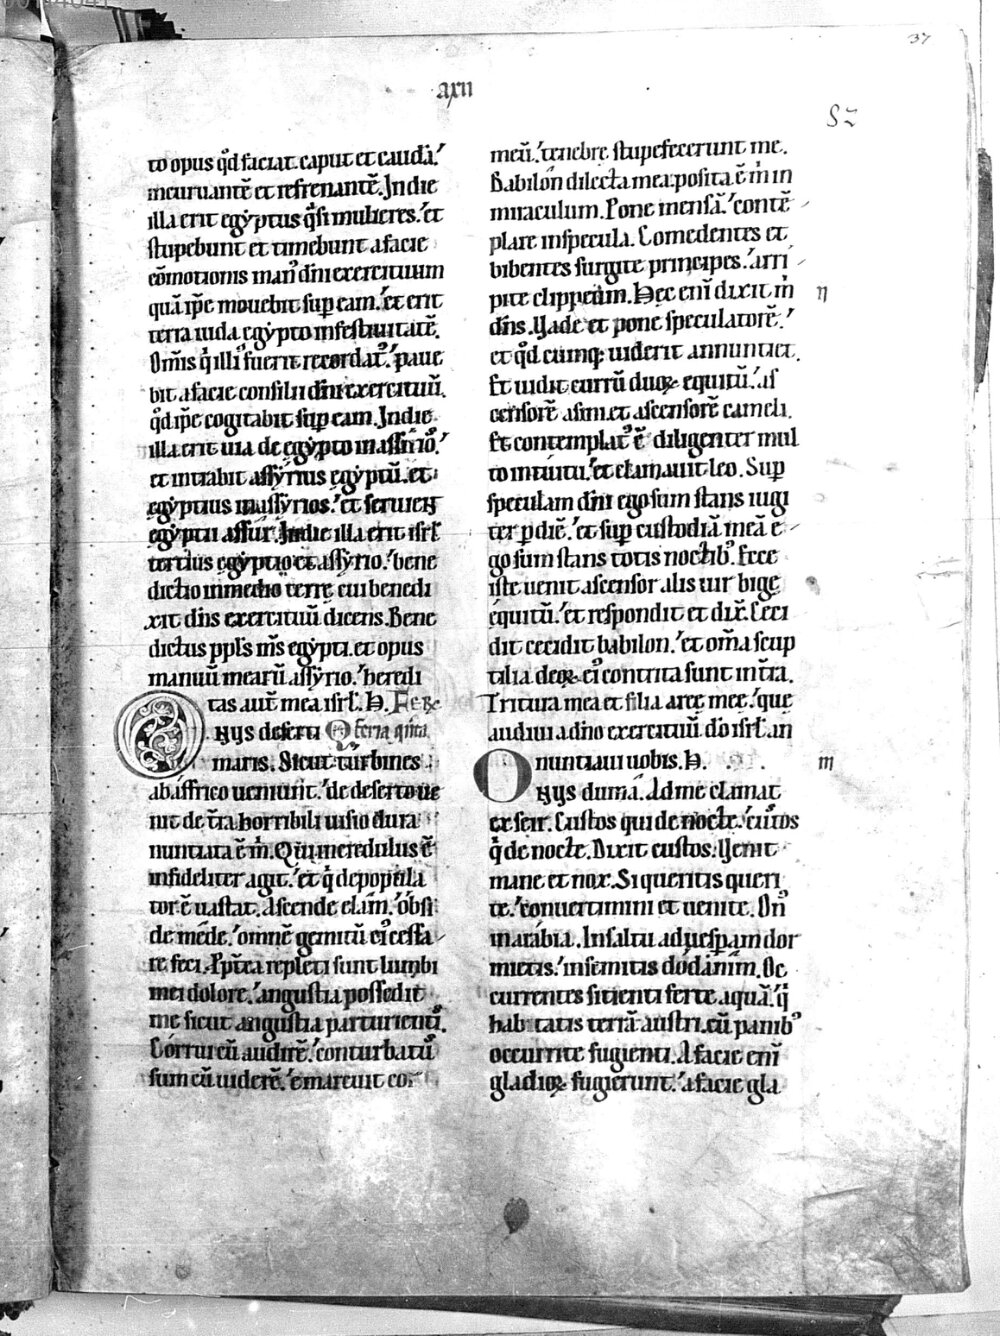 37
axii
82
to opus qd̄ faciat caput et caudā.'
incuruantē et refrenantē. In die
illa erit egẏptus qͣsi mulieres.' et
stupebunt et timebunt a facie
cōmotionis man' dn̄i exercituum
quā ip̄e mouebit sup eam.' et erit
terra iuda egẏpto in festiuitatē.
Om̄is qͥ illi' fuerit recordat'.' paue
bit a facie consilii dn̄i exercituū.
qd̄ ip̄e cogitabit sup eam. In die
illa erit uia de egẏpto in assirio'.'
et intrabit assẏrius egẏptū. et
egẏptius in assẏrios.' et seruient
egẏptii assur. In die illa erit isrl̄
tertius egẏptio et assẏrio.' bene
dictio in medio terre. cui benedi
xit dn̄s exercituū dicens. Bene
dictus ppl̄s m̄s egẏpti. et opus
manuū mearū assẏrio.' heredi
tas aut̄ mea isrl̄. H. Fer
nus deserti Feria qͥnta
maris. Sicut turbines
ab affrico ueniunt.' de deserto ue
nit de tr̄a horribili uisio dura
nuntiata ē m̄. Qui incredulus ē
infideliter agit.' et qͥ depopula
tor ē uastat. Ascende elam.' obsi
de mede.' omnē gemitū ei' cessa
re feci. Ppt̄ea repleti sunt lumbi
mei dolore.' angustia possedit
me sicut angustia parturienti'.
Corrui cū audirē.' conturbat'
sum cū uiderē.' emarcuit cor
meū.' tenebre stupefecerunt me.
Babilon dilecta mea posita ē m̄ in
miraculum. Pone mensā.' contē
plare in specula. Comedentes et
bibentes surgite principes.' arri
pite clippeum. Hec eni̅ dixit m̄
dn̄s. Uade et pone speculatorē.'
et qd̄ cumq; uiderit annuntiet.
Et uidit currū duoꝝ equitū.' as
censorē asini. et ascensorē cameli.
Et contemplat' ē diligenter mul
to intuitu.' et clamauit leo. Sup
speculam dn̄i ego sum stans iugi
ter p diē.' et sup custodiā meā e
go sum stans totis noctib'. Ecce
iste uenit ascensor alis uir bige
equitū.' et respondit et dix̄. Ceci
dit cecidit babilon.' et om̄a sculp
tilia deoꝝ ei' contrita sunt in tr̄a.
Tritura mea et filia aree mee.' que
audiui a dn̄o exercituū do isrl̄ an
nuntiaui uobis. H.
nus dumā. Ad me clamat
ex seir. Custos qui de nocte.' custos
qͥ de nocte. Dixit custos. Uenit
mane et nox. Si queritis queri
te.' conuertimini et uenite. On̄
in arabia. In saltu ad uesperam dor
mietis.' in semitis dodanim. Oc
currentes sitienti ferte aquā.' qͥ
habitatis terrā austri. cū panib'
occurrite fugienti. A facie eni̅
gladioꝝ fugierunt.' a facie gla
η
m